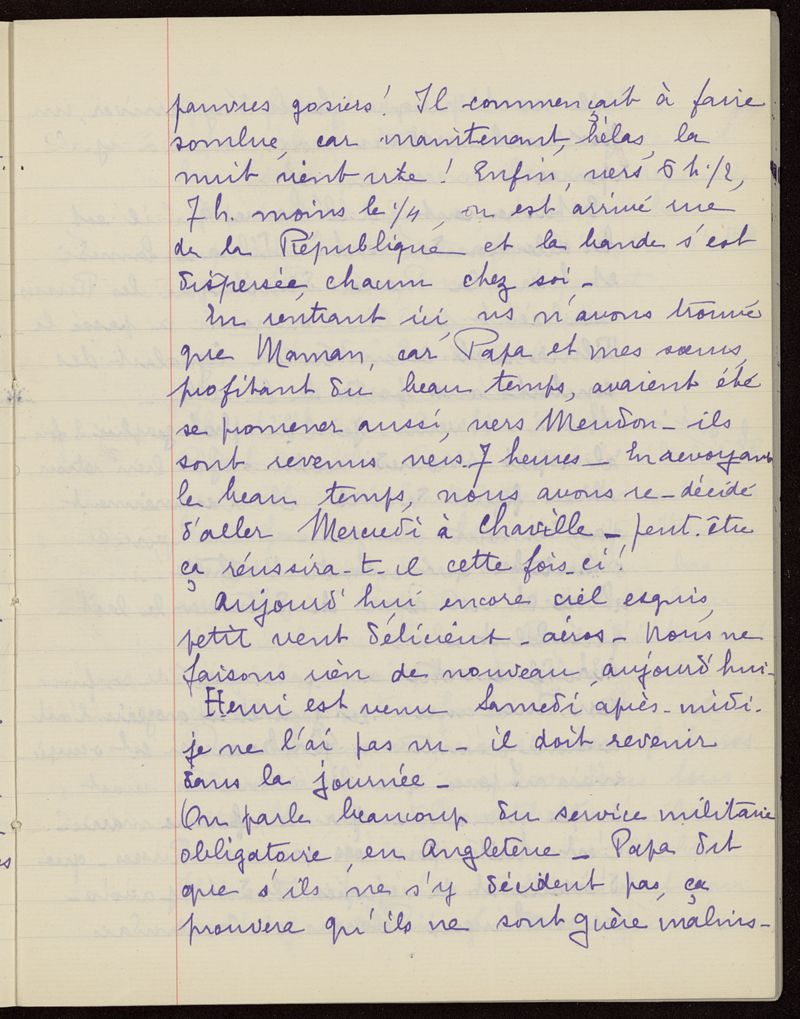 pauvres gosiers! Il commençait à faire
sombre, car maintenant, hélas, la
nuit vient vite! Enfin, vers 6 h. 1/2,
7 h. moins le 1/4, on est arrivé rue
de la République et la bande s'est
dispersée, chacun chez soi -
En rentrant ici, ns n'avons trouvé
que Maman, car Papa et mes sœurs,
profitant du beau temps, avaient été
se promener aussi, vers Meudon - ils
sont revenus vers 7 heures - En voyant
le beau temps, nous avons re-décidé
d'aller Mercredi à Chaville - peut-être
ça réussira-t-il cette fois-ci!
Aujourd'hui encore ciel exquis,
petit vent délicieux - aéros - Nous ne
faisons rien de nouveau, aujourd'hui -
Henri est venu Samedi après-midi -
je ne l'ai pas vu - il doit revenir
dans la journée -
On parle beaucoup du service militaire
obligatoire, en Angleterre - Papa dit
que s'ils ne s'y décident pas, ça
prouvera qu'ils ne sont guère malins -